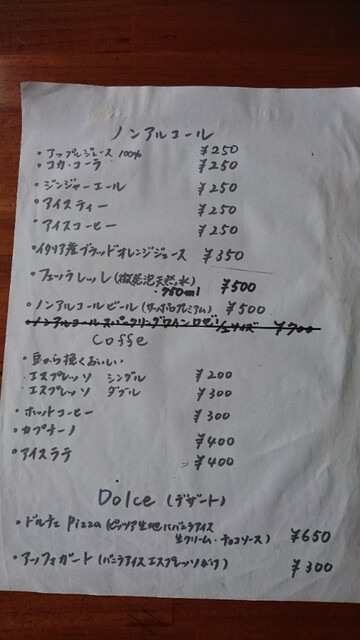 ノンアルコール
・アップルジュース 100% ¥250
・コカ・コーラ ¥250
・ジンジャーエール ¥250
・アイスティー ¥250
・アイスコーヒー ¥250
・イタリア産ブラッドオレンジジュース ¥350
・フェッラレッレ(微発泡天然水) ¥500
・750ml
・ノンアルコールビール(サッポロプレミアム) ¥500
・ノンアルコールスパークリングワインロゼ 1/2サイズ ¥700
Coffe
・豆から挽くおいしい
・エスプレッソ シングル ¥200
エスプレッソ ダブル ¥300
・ホットコーヒー ¥300
・カプチーノ ¥400
・アイスラテ ¥400
Dolce (デザート)
・ドルチェ Pizza (ピッツア生地にバニラアイス
生クリーム・チョコソース) ¥650
・アッフォガート (バニラアイスエスプレッソがけ) ¥300